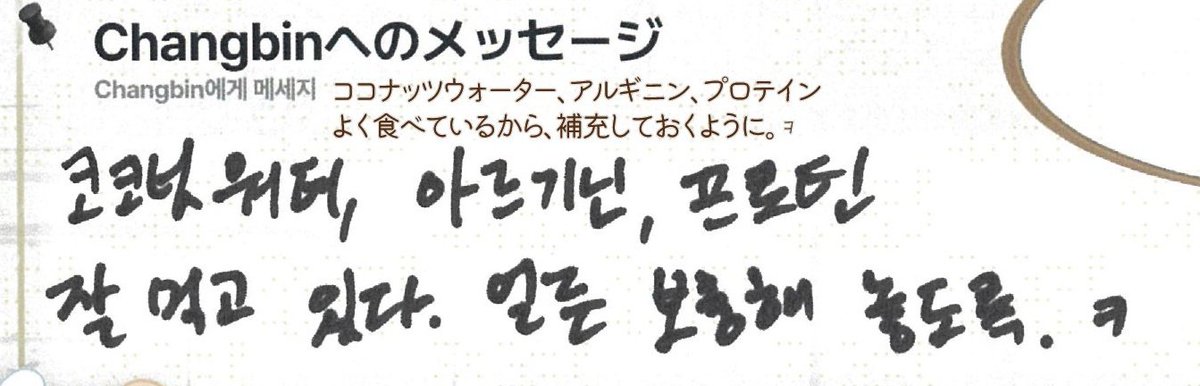 Changbinへのメッセージ
Changbin에게 메세지
ココナッツウォーター、アルギニン、プロテイン
よく食べているから、補充しておくように。ㅋ
코코넛 워터, 아르기닌, 프로틴
잘 먹고 있다. 얼른 보충해 놓도록. ㅋ